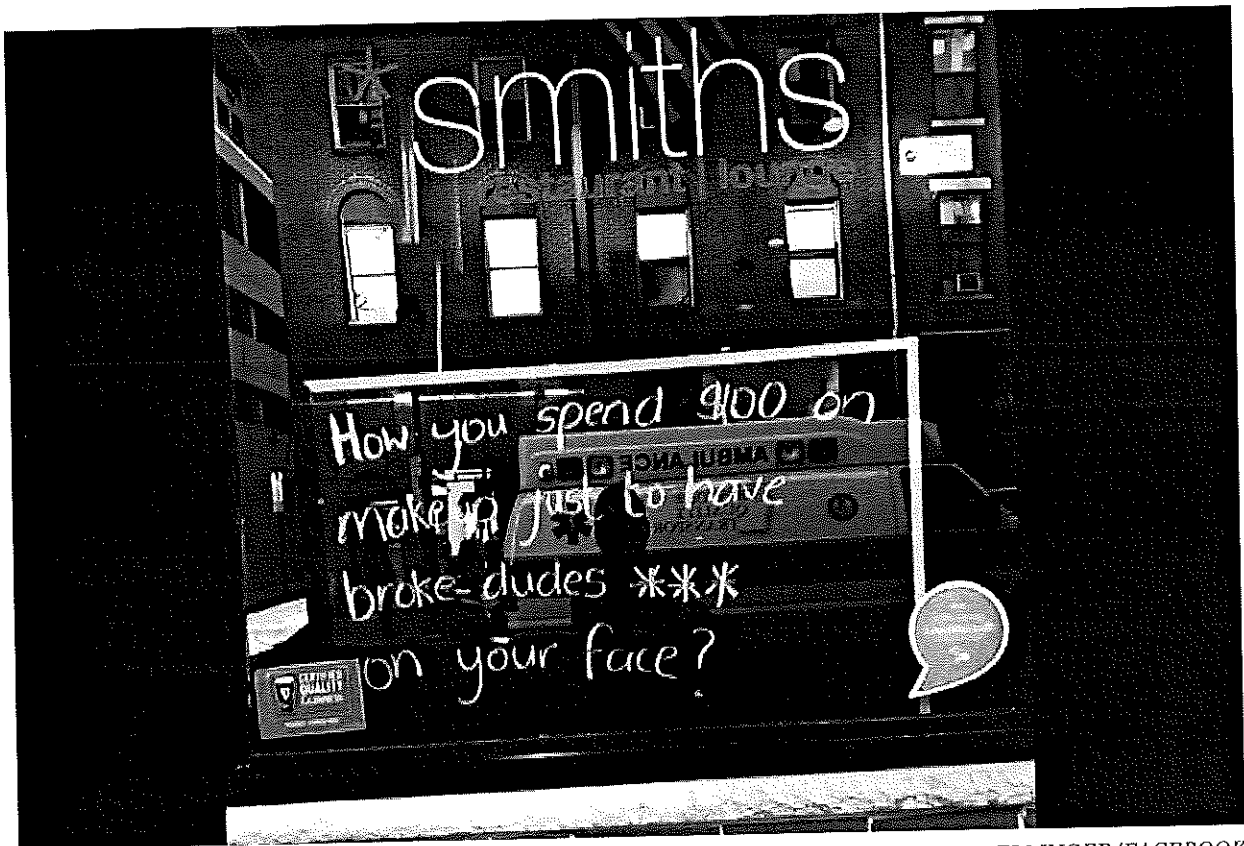 smiths
restaurant lounge
How you spend $100 on
AMBULANCE
makeup just to have
broke-dudes ***
on your face?
CERTIFIED
QUALITY
/FACEBOOK